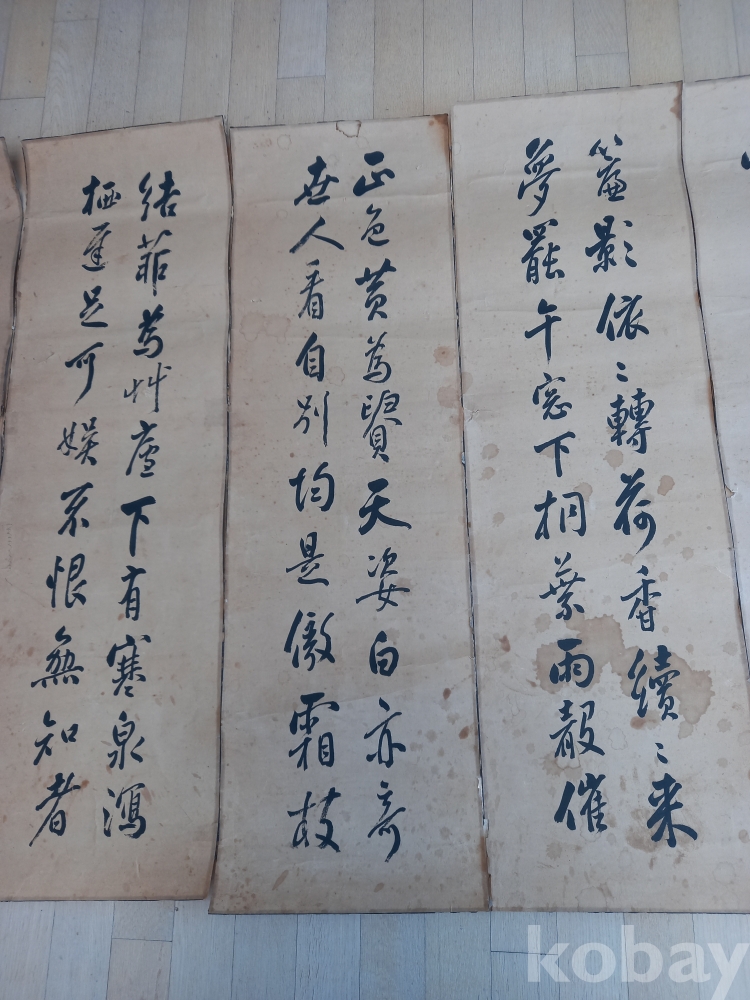 簾影依〻轉荷香續〻来
夢罷午窓下桐葉雨聲催
正色黄為賢天姿白亦奇
世人看自別均是傲霜枝
結茆為艸廬下有寒泉瀉
栖遲足可娛不恨無知者
kobay